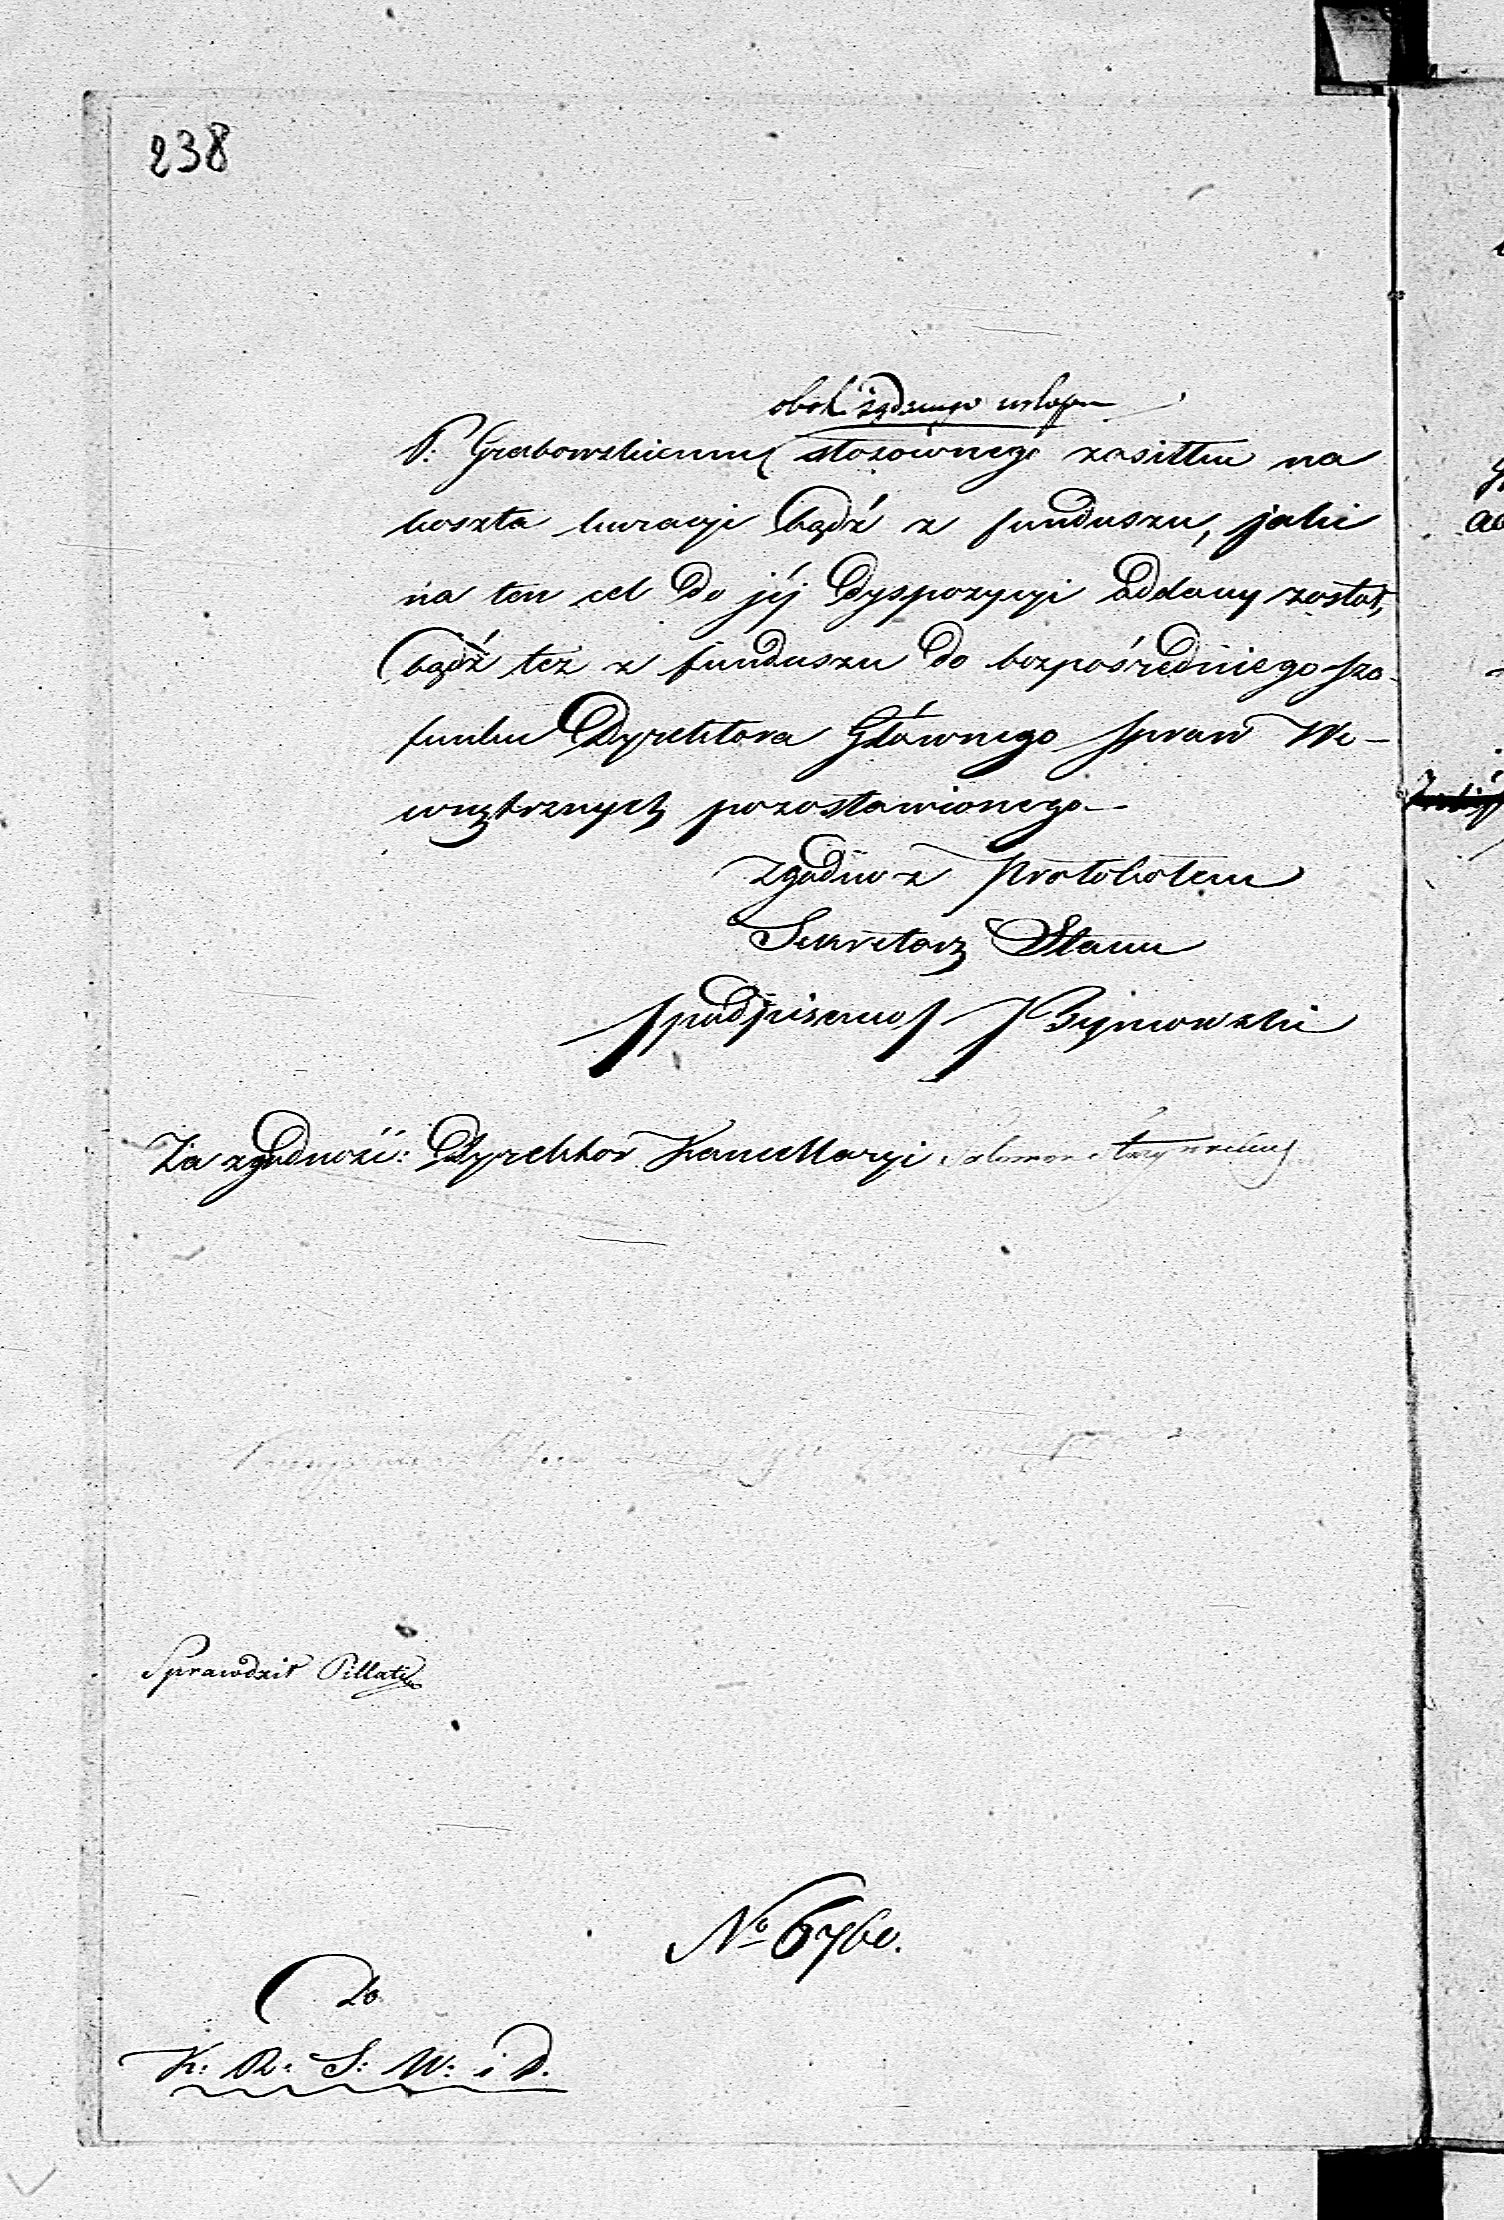 238
obok żądanego urlopu
P. Grabowskiemu stosownego zasiłku na
koszta kuracyi bądź z funduszu, jaki
na ten cel do jéj dyspozycyi oddany został,
bądź też z funduszu do bezpośredniego sza-
funku Dyrektora Głównego Spraw We-
wnętrznych pozostawionego.—
Zgodno z Protokołem
Sekretarz Stanu
/podpisano/ J Tymowski
Za zgodność: Dyrektor Kancellaryi
Sprawdził Pillati
No 6760.
Do
K: R: S: W: i D.